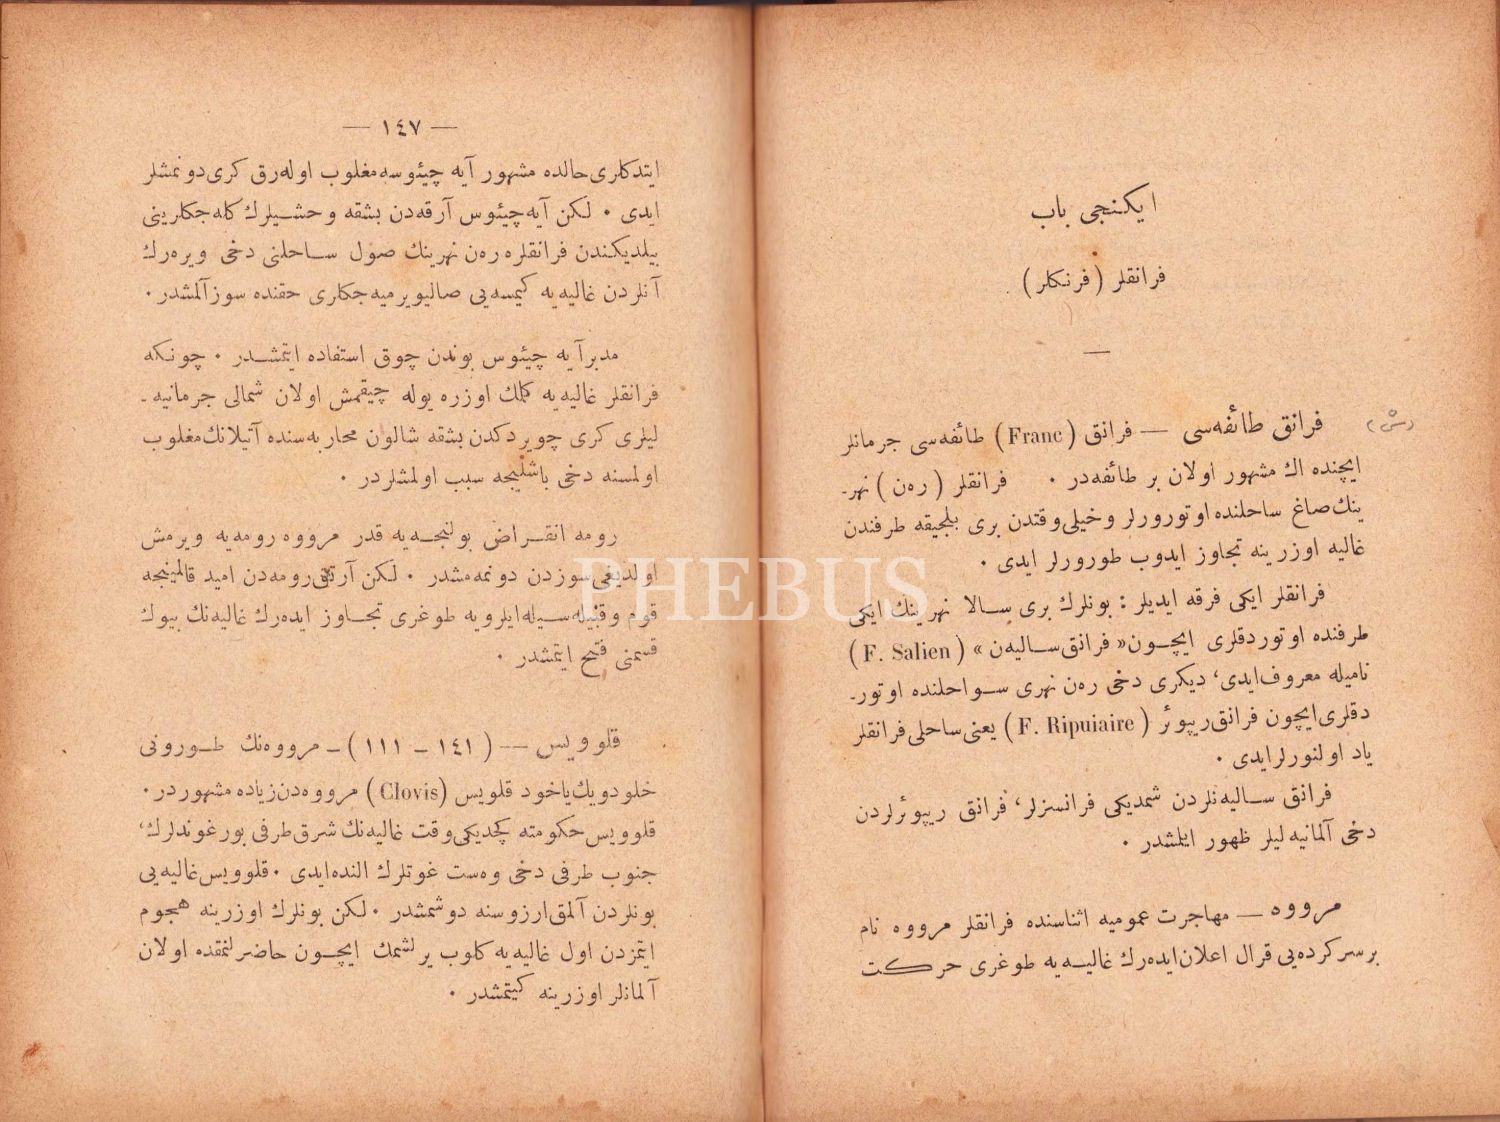 ایكنجی باب
فرانقلر (فرنكلر)
فرانق طائفه‌سی — فرانق (Franc) طائفه‌سی جرمانلر
ایچنده اك مشهور اولان بر طائفه‌در . فرانقلر (ره‌ن) نهر-
ینك صاغ ساحلنده اوتورورلر وخیلی وقتدن بری بلجیقه طرفندن
غالیه اوزرینه تجاوز ایدوب طورورلر ایدی .
فرانقلر ایكی فرقه ایدیلر : بونلرك بری سالا نهرینك ایكی
طرفنده اوتوردقلری ایچون « فرانق سالیه‌ن » (F. Salien)
نامیله معروف ایدی، دیكری دخی ره‌ن نهری سواحلنده اوتور-
دقلری ایچون فرانق ریپوئر (F. Ripuiaire) یعنی ساحلی فرانقلر
یاد اولنورلرایدی .
فرانق سالیه‌نلردن شمدیكی فرانسزلر، فرانق ریپوئرلردن
دخی آلمانیه‌لیلر ظهور ایلمشدر .
مرووه — مهاجرت عمومیه اثناسنده فرانقلر مرووه نام
برسركرده‌یی قرال اعلان ایده‌رك غالیه‌یه طوغری حركت
— ١٤٧ —
ایتدكلری حالده مشهور آیه چیئوسه مغلوب اوله‌رق كری دونمشلر
ایدی . لكن آیه چیئوس آرقه‌دن بشقه وحشیلرك كله‌جكلرینی
بیلدیكندن فرانقلره ره‌ن نهرینك صول ساحلنی دخی ویره‌رك
آنلردن غالیه‌یه كیمسه‌یی صالیویرمیه‌جكلری حقنده سوز آلمشدر .
مدبر آیه چیئوس بوندن چوق استفاده ایتمشدر . چونكه
فرانقلر غالیه‌یه كلمك اوزره یوله چیقمش اولان شمالی جرمانیه-
لیلری كری چویردكدن بشقه شالون محاربه‌سنده آتیلانك مغلوب
اولمسنه دخی باشلیجه سبب اولمشلردر .
رومه انقراض بولنجه‌یه قدر مرووه رومه‌یه ویرمش
اولدیغی سوزدن دونمه‌مشدر . لكن آرتق رومه‌دن امید قالمینجه
قوم وقبیله‌سیله ایلرویه طوغری تجاوز ایده‌رك غالیه‌نك بیوك
قسمنی فتح ایتمشدر .
قلوویس — (١٤١ - ١١١) - مرووه‌نك طورونی
خلودویك یاخود قلویس (Clovis) مرووه‌دن زیاده مشهوردر .
قلوویس حكومته كچدیكی وقت غالیه‌نك شرق طرفی بورغوندلرك،
جنوب طرفی دخی وه‌ست غوتلرك النده ایدی . قلوویس غالیه‌یی
بونلردن آلمق ارزوسنه دوشمشدر . لكن بونلرك اوزرینه هجوم
ایتمزدن اول غالیه‌یه كلوب یرلشمك ایچون حاضرلنمقده اولان
آلمانلر اوزرینه كیتمشدر .
PHEBUS